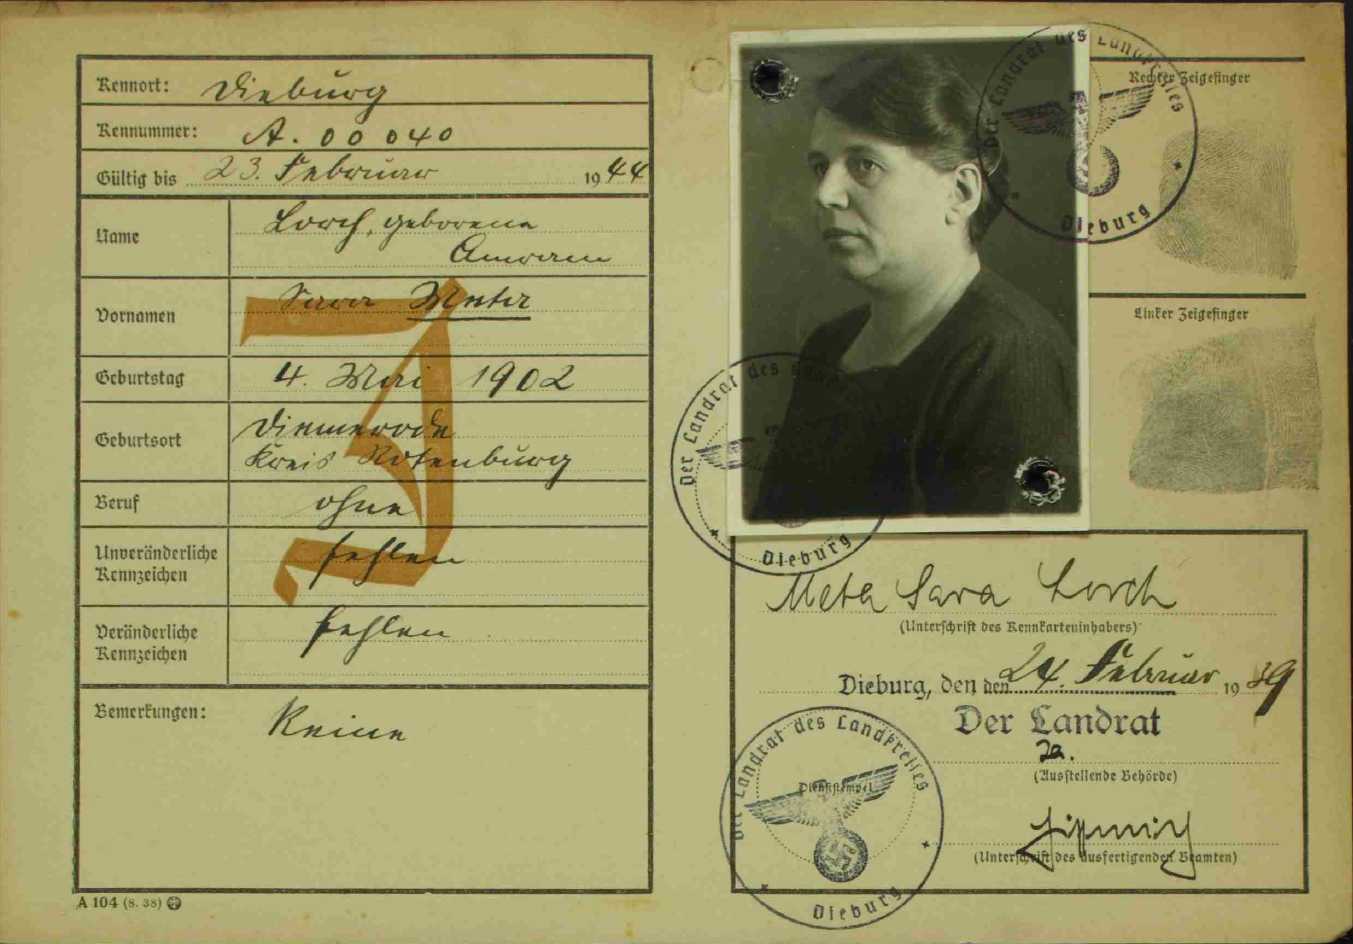 Kennort: Dieburg
Kennummer: A. 00 040
Gültig bis 23. Februar 1944
Name Lorch, geborene
Amram
Vornamen Sara Meta
J
Geburtstag 4. Mai 1902
Geburtsort Diemerode
Kreis Rotenburg
Beruf ohne
Unveränderliche
Kennzeichen fehlen
Veränderliche
Kennzeichen fehlen
Bemerkungen: Keine
A 104 (8. 38)
Der Landrat des Landkreises
Dieburg
Rechter Zeigefinger
Linker Zeigefinger
Der Landrat des
Dieburg
Meta Sara Lorch
(Unterschrift des Kennkarteninhabers)
Dieburg, den den 24. Februar 1939
Der Landrat
(Ausstellende Behörde)
Der Landrat des Landkreises
Dienststempel
Dieburg
(Unterschrift des ausfertigenden Beamten)